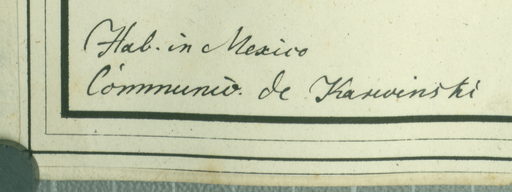 Hab. in Mexico
Communiv. de Karwinski